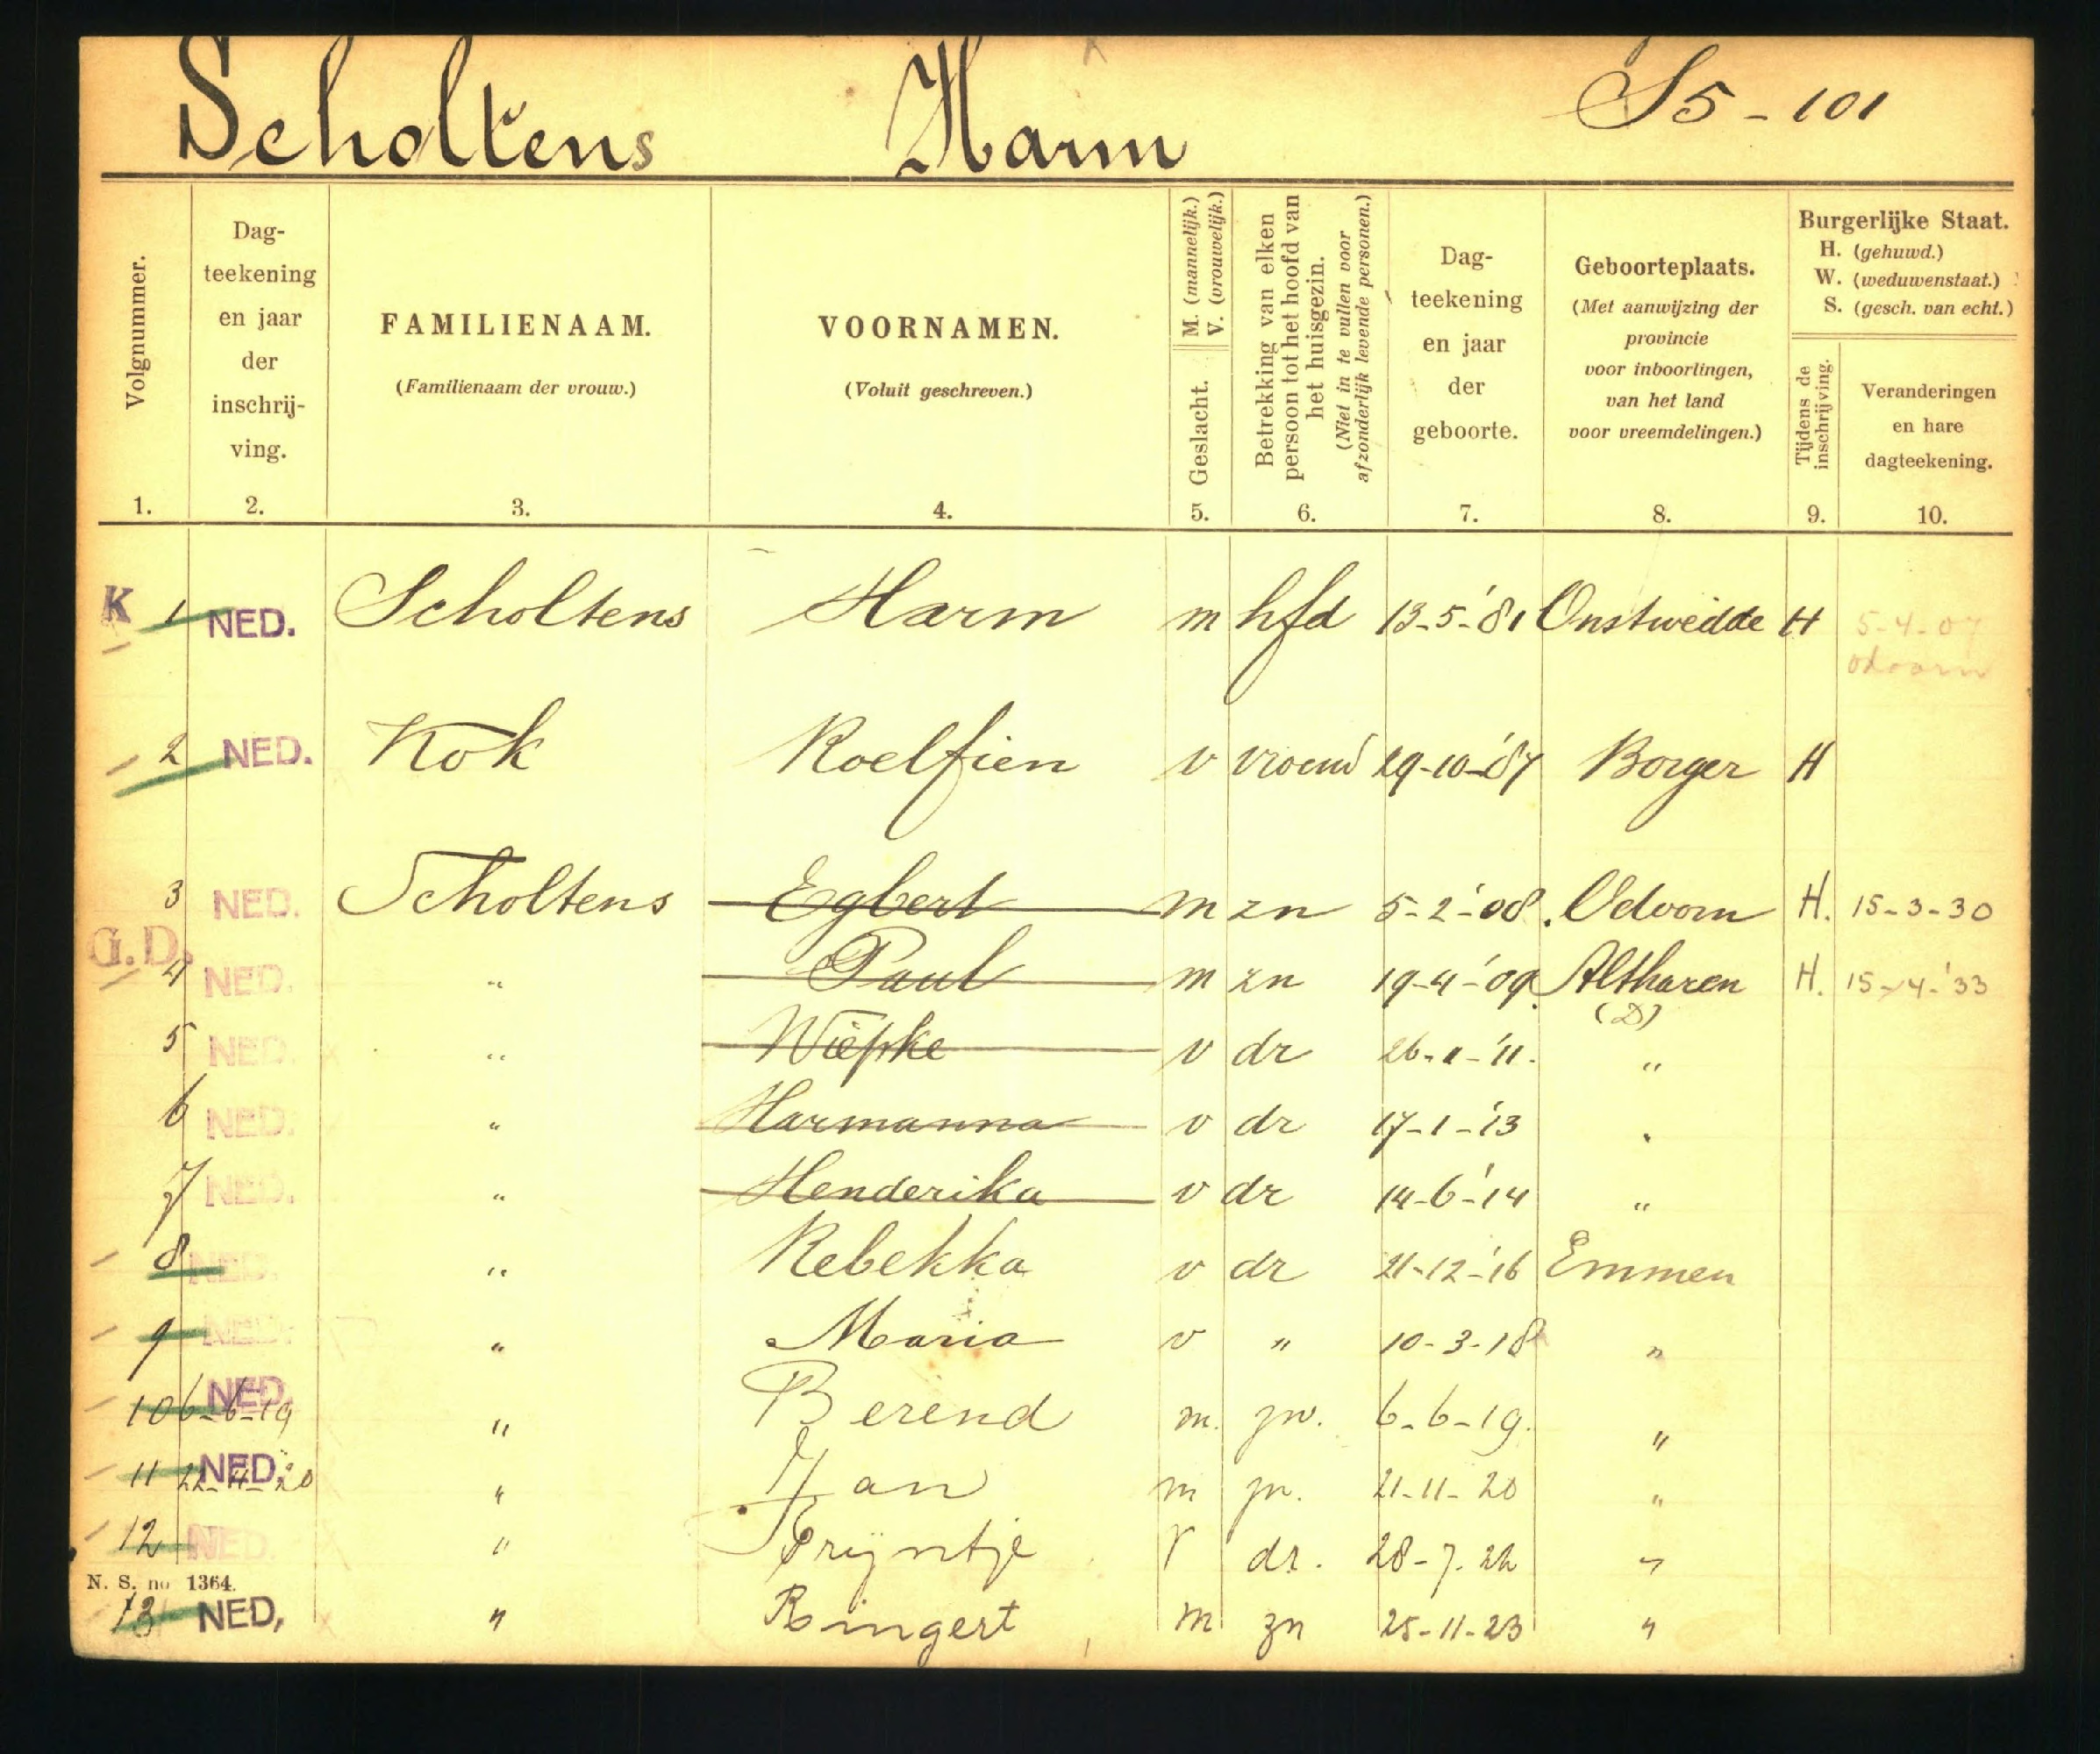 Scholtens Harm S5 - 101
Volgnummer.
1.
Dag-
teekening
en jaar
der
inschrij-
ving.
2.
FAMILIENAAM.
(Familienaam der vrouw.)
3.
VOORNAMEN.
(Voluit geschreven.)
4.
M. (mannelijk.)
V. (vrouwelijk.)
Geslacht.
5.
Betrekking van elken
persoon tot het hoofd van
het huisgezin.
(Niet in te vullen voor
afzonderlijk levende personen.)
6.
Dag-
teekening
en jaar
der
geboorte.
7.
Geboorteplaats.
(Met aanwijzing der
provincie
voor inboorlingen,
van het land
voor vreemdelingen.)
8.
Burgerlijke Staat.
H. (gehuwd.)
W. (weduwenstaat.)
S. (gesch. van echt.)
Tijdens de
inschrijving.
9.
Veranderingen
en hare
dagteekening.
10.
K 1 NED. Scholtens Harm m hfd 13-5-'81 Onstwedde H 5-4-07
odoorn
2 NED. Kok Roelfien v vrouw 29-10-'87 Borger H
3 NED. Scholtens Egbert m zn 5-2-'08. Odoorn H. 15-3-30
G.D. 4 NED. " Paul m zn 19-4-'09. Altharen H. 15-4-'33
(D)
5 NED. " Wiepke v dr 26-1-'11. "
6 NED. " Harmanna v dr 17-1-'13 "
7 NED. " Henderika v dr 14-6-'14 "
8 NED. " Rebekka v dr 21-12-'16 Emmen
9 NED. " Maria v " 10-3-18 "
10 6-6-19 NED. " Berend m. zn. 6-6-19. "
11 22-11-20 NED. " Jan m zn. 21-11-20 "
12 NED. " Prijntje V dr. 28-7-22 "
N. S. no 1364.
13 NED. " Ringert m zn 25-11-23 "